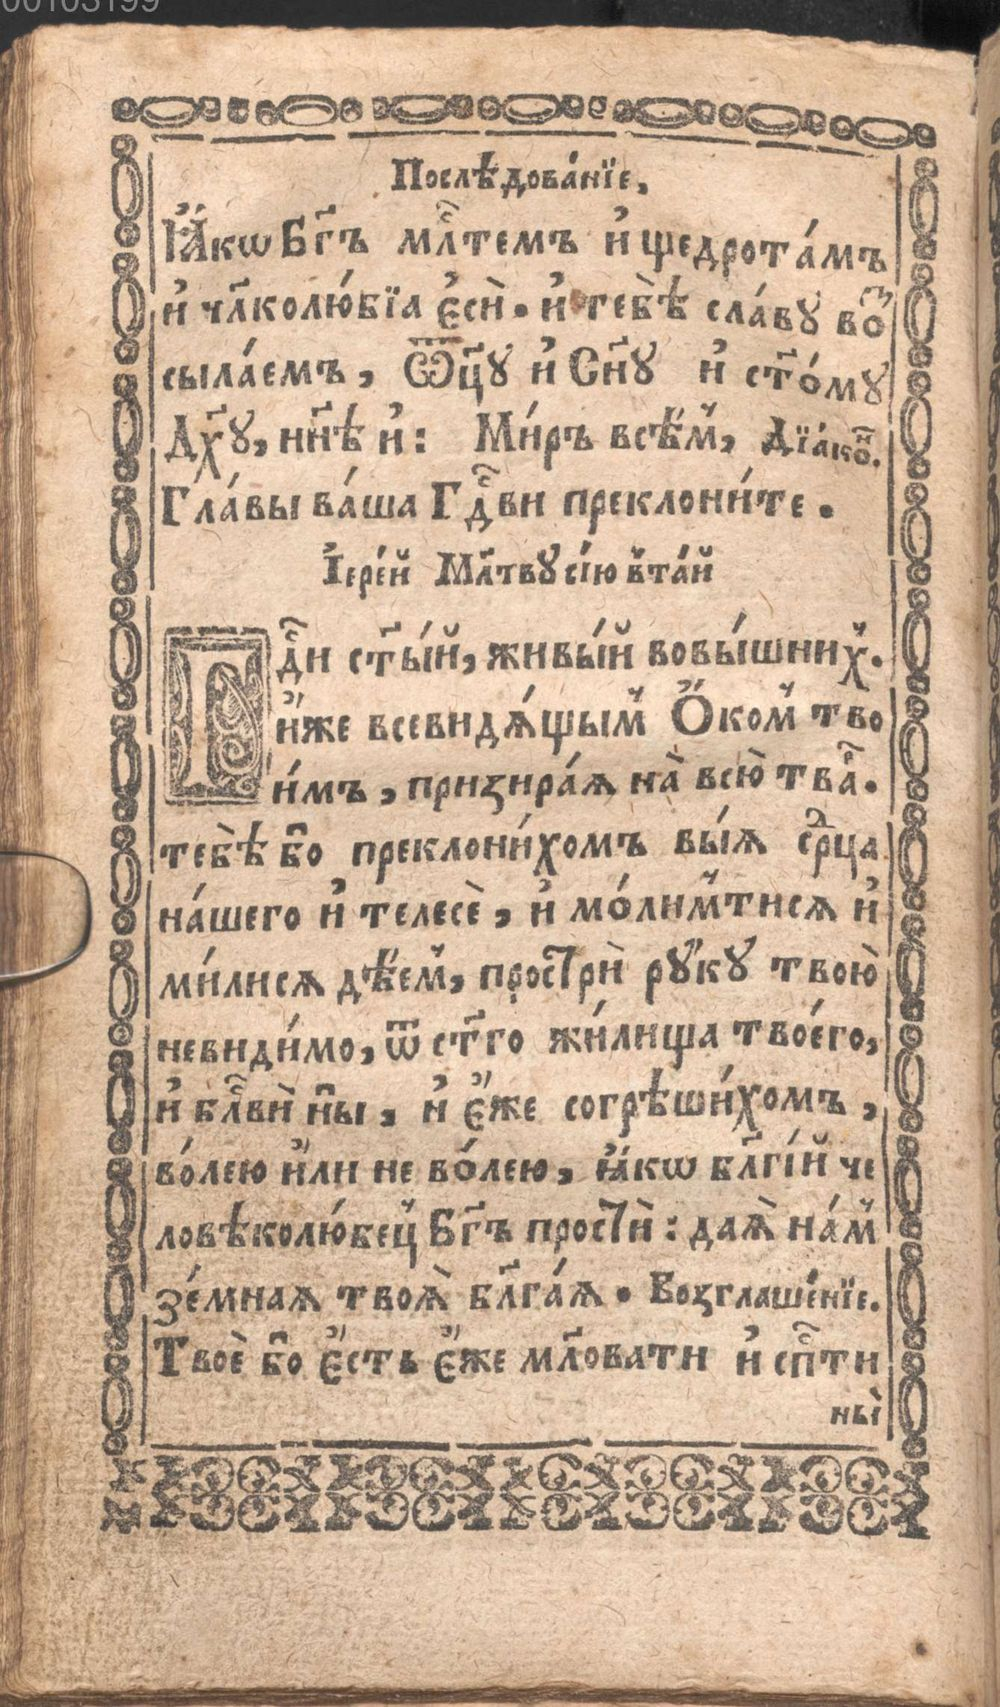 00103199
Послѣдова́нїе,
Ꙗ҆́кѡ Бг҃ъ мл҃тємъ и҆ щедрота́мъ
и҆ чл҃колю́бїа є҆сѝ. и҆ тебѣ̀ сла́ву воⷥ
сыла́емъ, Ѿц҃у и҆ Сн҃у и҆ ст҃о́му
Дх҃у, нн҃ѣ и҆: Ми́ръ всѣ́мⸯ, Дїа́коⷩ.
Гла́вы ва́ша Гдⷭ҇ви преклони́те.
І҆ере́й Мл҃тву сїю́ вⸯта́й
Гдⷭ҇и ст҃ы́й, живы́й вовы́шнихⸯ.
и҆́же всевидѧ́щымⸯ Ѻ҆́комⸯ тво
и́мъ, призира́ѧ на̀ всю̀ тваⷬ҇.
тебѣ̀ бо преклони́хомъ вы́ѧ срⷣца
на́шего и҆ телесѐ, и҆ мо́лимⸯтисѧ и҆
ми́лисѧ дѣ́емⸯ, прострѝ рꙋ́кꙋ твою̀
невиди́мо, ѿ ст҃го жи́лища твоего́,
и҆ блⷭ҇вѝ ны, и҆ є҆́же согрѣши́хомъ,
во́лею и҆лѝ не во́лею, ꙗ҆́кѡ бл҃гі́й че
ловѣколю́бецⸯ Бг҃ъ простѝ: даѧ̀ на́мⸯ
зе́мнаѧ твоѧ̀ бл҃га́ѧ. Возглаше́нїе.
Твоѐ бо є҆́сть є҆́же мл҃овати и҆ сп҃сти
ны̀